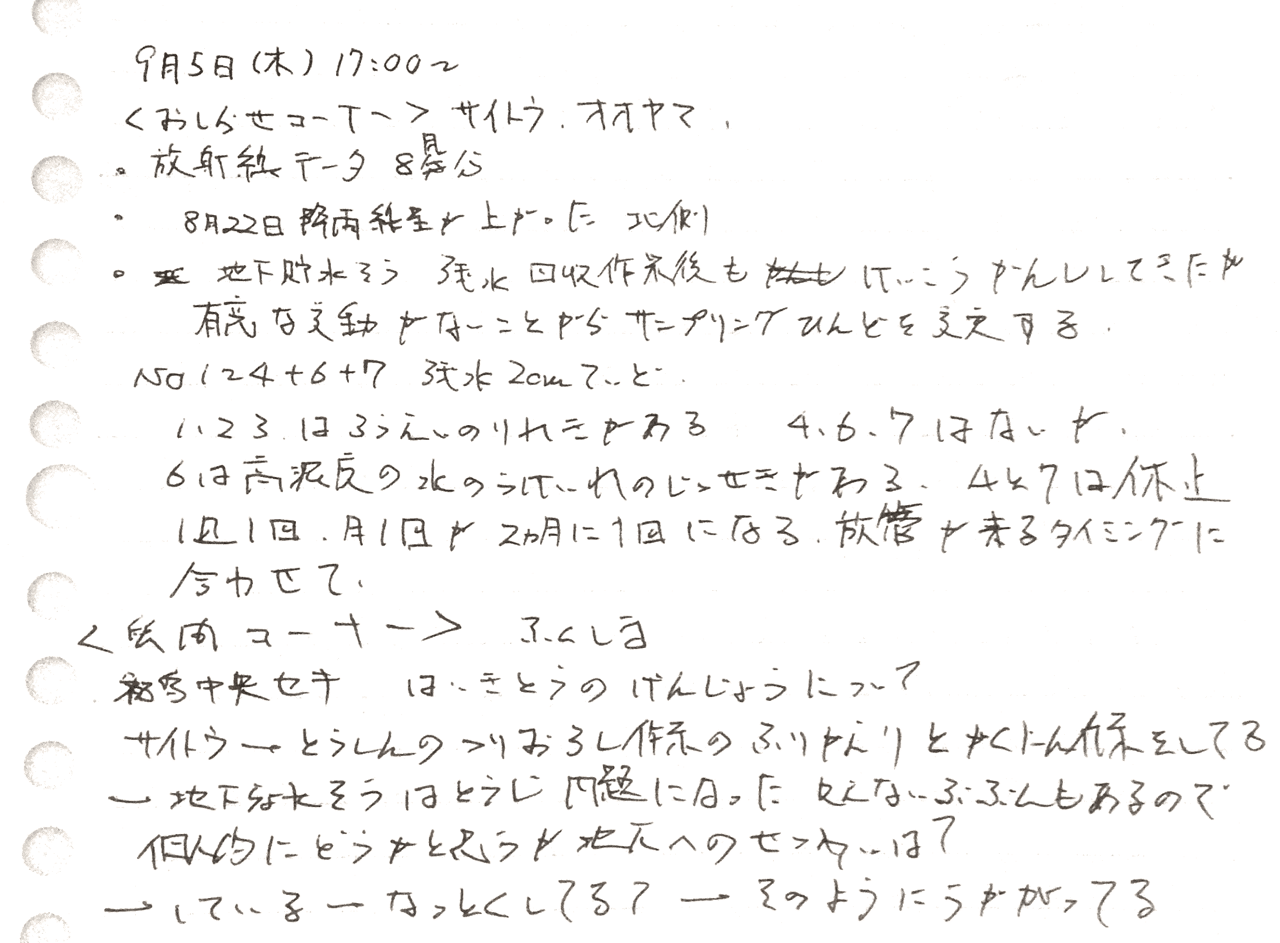 9月5日(木) 17:00〜
<おしらせコーナー> サイトウ、オオヤマ、
・放射線データ 8月分
・ 8月22日 降雨 が上がった 北側
・ 地下貯水そう 残水回収作業後も けいこうかんししてきたが
有意な変動がないことからサンプリングひんどを変更する。
No 1 2 4+6+7 残水2cmていど。
1、2 3、はろうえいのりれきがある 4、6、7はないが、
6は高濃度の水のうけいれのじっせきがある、4と7は休止
1週1回、月1回が2カ月に1回になる、放管が来るタイミングに
合わせて、
<質問コーナー> ふくしま
中央セキ はいきとうのげんじょうについて?
サイトウ→とうしんのつりおろし作業のふりかえりとかくにん作業をしてる
→地下貯水そうはとうじ問題になった 見えないぶぶんもあるので
個人的にどうかと思うが地元へのせつめいは?
→している→なっとくしてる?→そのようにうかがってる